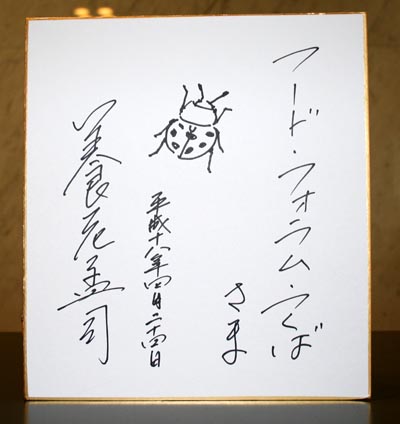 フード・フォラム・つくば
さま
平成十八年四月二十四日
養老孟司